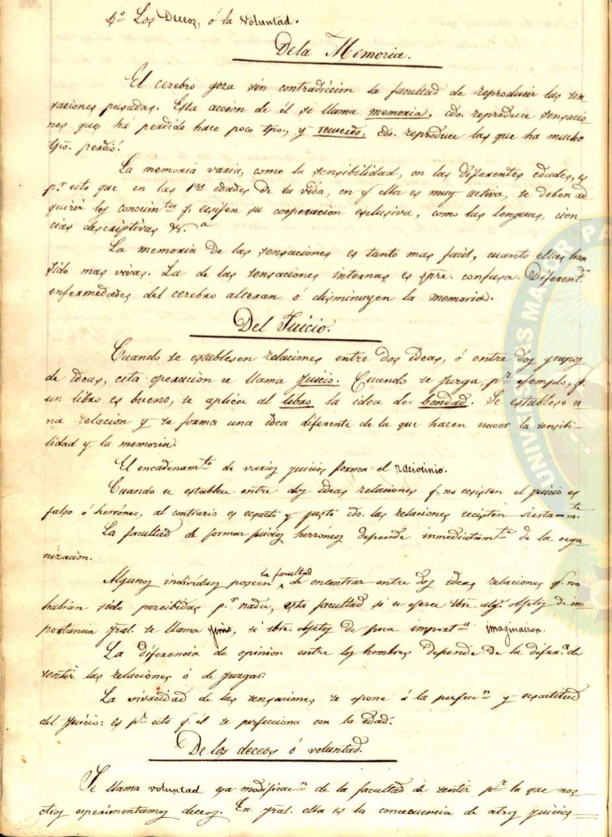 4º Los Deceos, ó la voluntad.
Dela Memoria.
El cerebro goza sin contradiccion la facultad de reproducir las sen
saciones pasadas. Esta accion de él se llama memoria, cdo. reproduce sensacio
nes que ha perdido hace poco tpo, y recuerdo, cdo. reproduce las que ha mucho
tpo. perdió.
La memoria varia, como la sensibilidad, en las diferentes edades, es
pr. esto que en las 1as edades de la vida, en q ella es muy activa, se deben ad
quirir los conocimtos q. ecsijen su cooperacion esclusiva, como las lenguas, cien
cias descriptivas &.a
La memoria de las sensaciones es tanto mas facil, cuanto ellas han
sido mas vivas. La de las sensaciones internas es spre. confusa. Diferent.s
enfermedades del cerebro alteran ó disminuyen la memoria.
Del Juicio.
Cuando se establesen relaciones entre dos ideas, ó entre dos grupos
de ideas, esta operacion se llama juicio. Cuando se juzga pr. ejemplo, q.
un libro es bueno, se aplica al libro la idea de bondad. Se establese u
na relacion y se forma una idea diferente de la que hacen nacer la sensibi
lidad y la memoria.
El encadenamto. de varios juicios forma el raciocinio.
Cuando se establece entre dos ideas relaciones q. no ecsisten el juicio es
falso ó herroneo, al contrario es ecsacto y justo cdo. las relaciones ecsisten
La facultad de formar juicios herroneos depende inmediatamte. de la orga
nizacion.
Algunos individuos poseen la facultad de encontrar entre dos ideas relaciones q. no
habian sido percibidas pr. nadie, esta facultad si se eferce sbre. algs. objetos de im
portancia gral. se llama jenio, si sbre. objetos de poca importa. imaginacion.
La diferencia de opinion entre los hombres depende de la difera. de
sentir las relaciones ó de juzgar.
La vivacidad de las sensaciones se opone á la perfecn. y ecsactitud
del juicio: es pr. esto q el se perfecciona con la edad.
De los deceos ó voluntad.
Se llama voluntad ga modificacn. de la facultad de sentir pr. la que nos
otros esperimentamos deceos. En gral. ella es la concecuencia de ntros juicios
UNIVERSITAS MAIOR PA